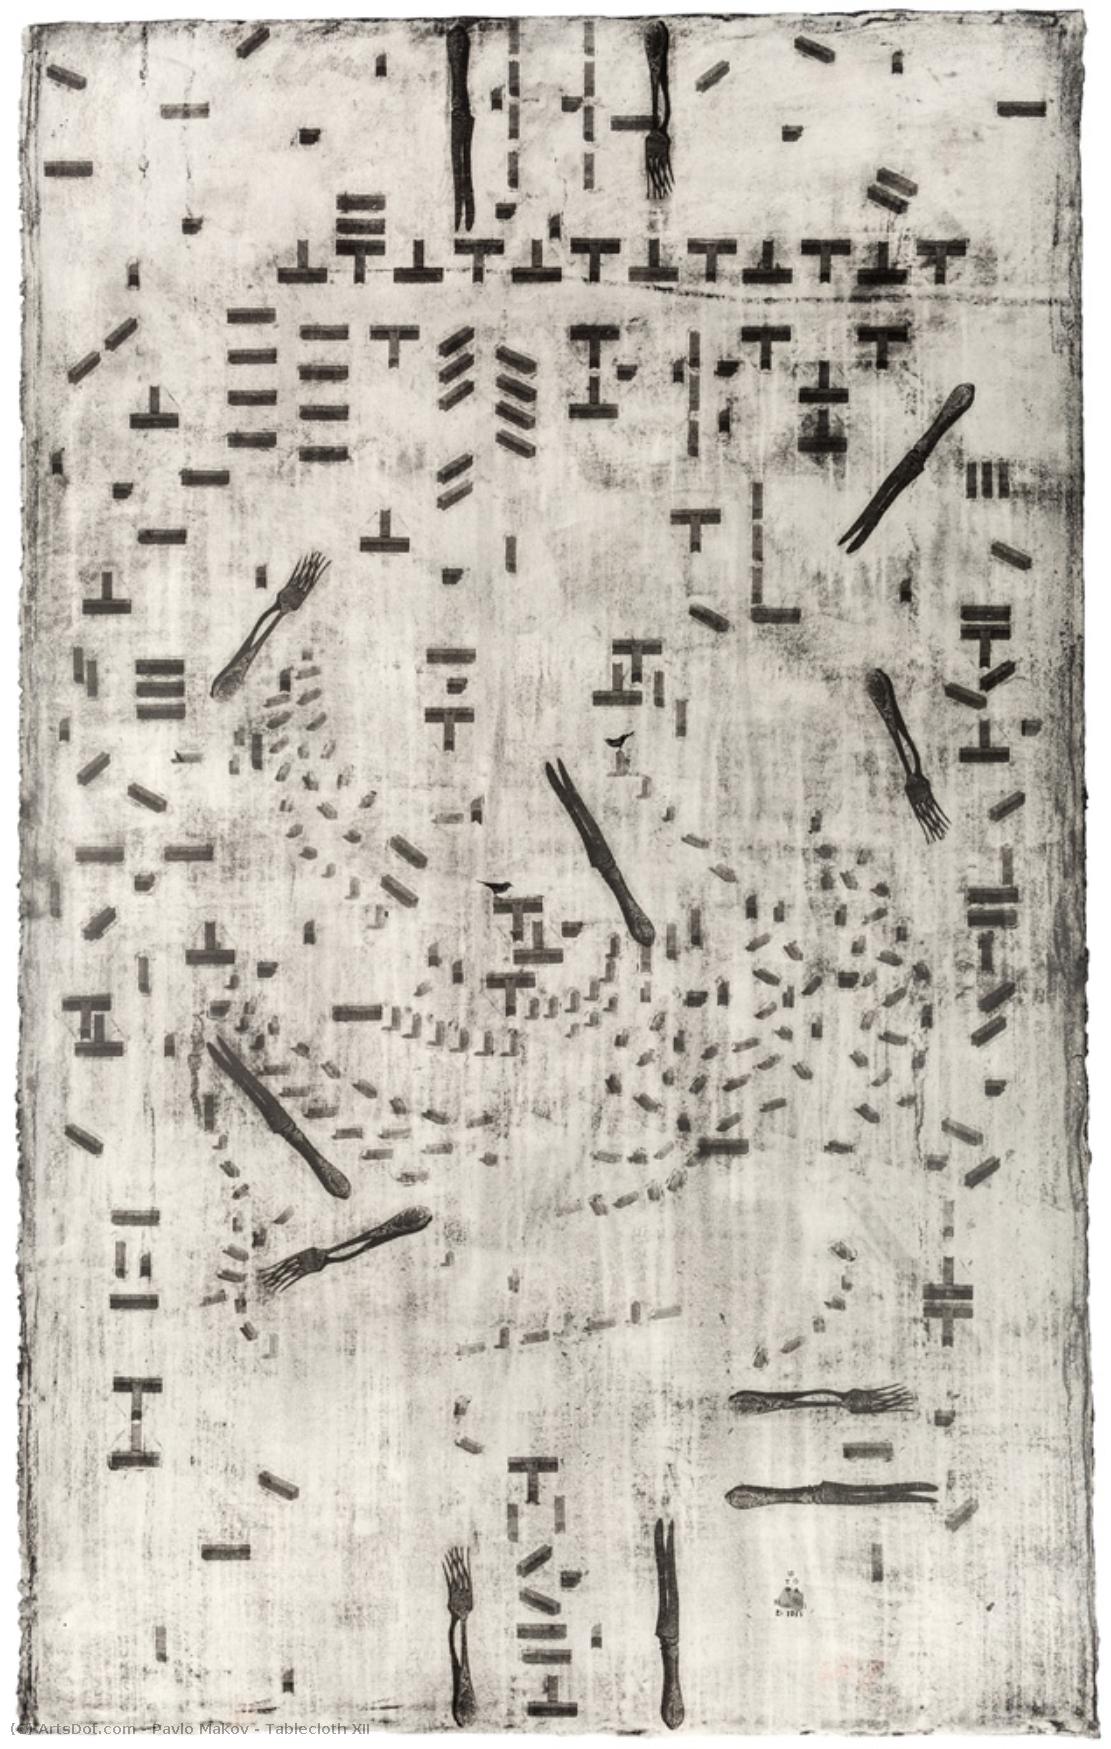 (c) ArtsDot.com - Pavlo Makov - Tablecloth XII